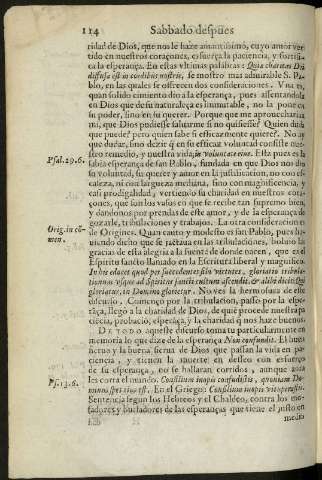 114 Sabbado despues
ridad de Dios, que nos le haze amantissimo, cuyo amor ver
tido en nuestros coraçones, esfuerça la paciencia, y fortifi-
ca la esperança. En estas vltimas palabras: Quia charitas Dei
diffusa est in cordibus nostris, se mostro mas admirable S. Pa-
blo, en las quales se ofrecen dos consideraciones. Vna es,
quan solido cimiento dio a la esperança, pues assentandola
en Dios que de su naturaleza es inmutable, no la pone en
su poder, sino en su querer. Porque que me aprouechara
mi, que Dios pudiesse saluarme si no quisiesse? Quien duda
que puede? pero quien sabe si eficazmente quiere? No ay
que dudar, sino dezir que en su eficaz voluntad consiste nue-
Psal. 29.6. stro remedio, y nuestra vida, & in voluntate eius. Esta pues es la
sabia esperança de san Pablo, fundada en que Dios nos dio
su voluntad, su querer y amor en la justificacion, no con es-
caleza, ni con largueza mediana, sino con magnificencia, y
casi prodigalidad, vertiendo su charidad en nuestros cora-
çones, que son los vasos en que se recibe tan supremo bien,
y dandonos por prendas de este amor, y de la esperança de
gozarle, tribulaciones y trabajos. La otra consideracion es
Orig. in cō de Origenes. Quan cauto y modesto es san Pablo, pues hu-
men. uiendo dicho que se jactaua en las tribulaciones, boluio la
gracias de esta alegria a la fuente de donde nacen, que es el
Espiritu santo llamado en la Escritura liberal y magnifico.
In hoc elacet quod per succedentes sibi virtutes, gloriatio tribula-
tionum vsque ad Spiritus sancti culmen ascendit, & alibi dicit: Qui
gloriatur, in Domino glorietur. Noteys la hermosura de este
discurso. Començò por la tribulacion, passò por la espe-
rança, llegò a la charidad de Dios, de que procede nuestra pa
ciencia, probacion, esperança, y la charidad que nos haze buenos.
DE TODO aqueste discurso toma tu particularmente en
memoria lo que dize de la esperança Non confundit. El buen
ierno y la buena sierua de Dios que passan la vida en pa-
ciencia, y vienen la muerte en desseo con esfuerço
de su esperança, no se hallaran corridos, aunque a todos
Ps. 13.6. les corra el mundo. Consilium inopis confudistis, quoniam Do-
minus spes eius est. En el Griego: Consilium inopis vituperastis.
Sentencia segun los Hebreos y el Chaldeo, contra los mo-
fadores y burladores de las esperanças que tiene el justo en
medio